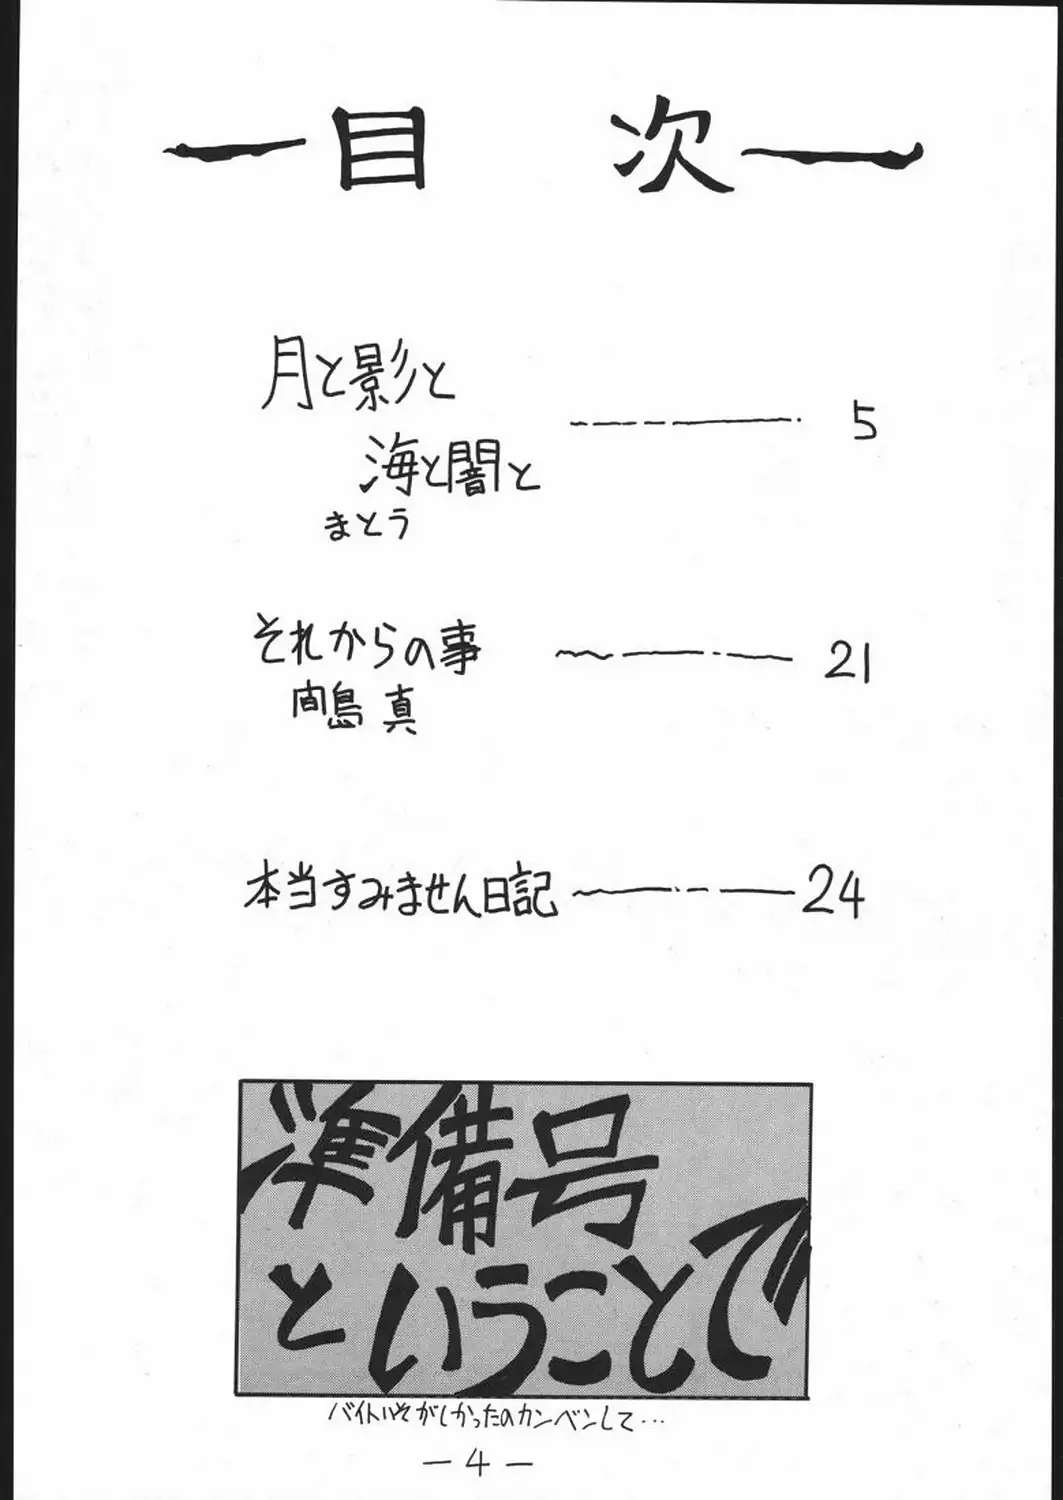 目 次
月と影と
海と闇と
まとう
5
それからの事
21
間島 真
本当すみません日記
24
準備号
ということで
バイトいそがしかったのカンベンして…
－4－